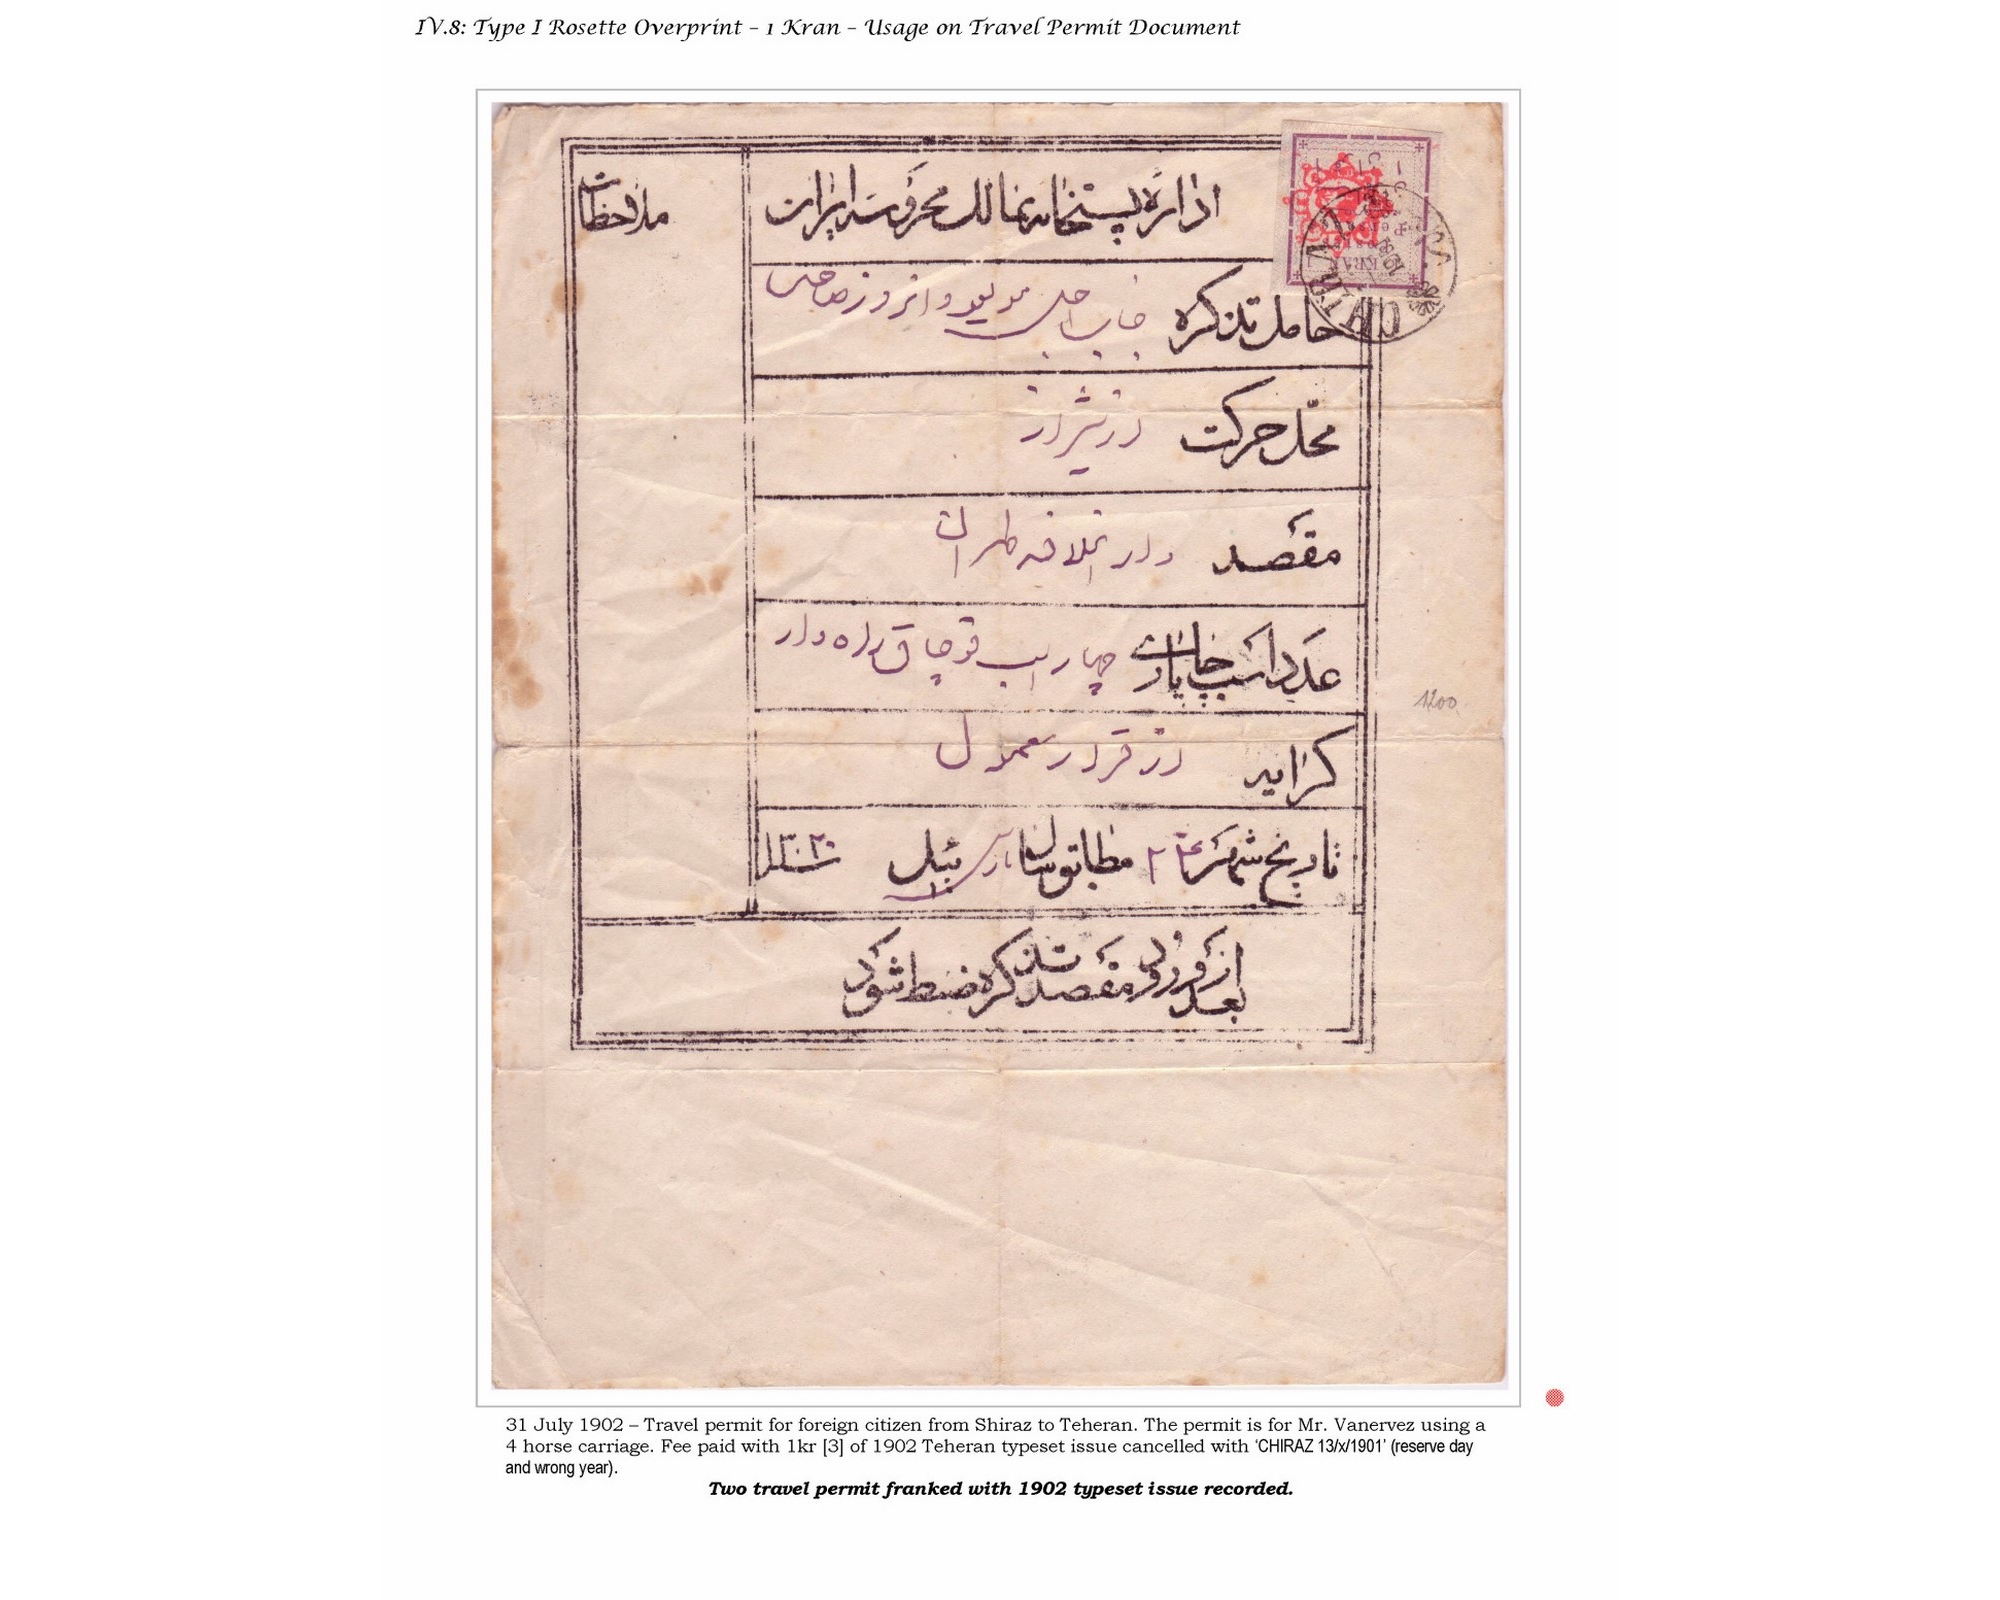 IV.8: Type I Rosette Overprint – 1 Kran – Usage on Travel Permit Document
اداره پستخانه ممالک محروسه ایران
ملاحظات
حامل تذکره جناب اجل موسیو وانروز صاحب
محل حرکت از شیراز
مقصد دار الخلافه طهران
عدد اسب چاپاری چهار اسب قوچاق راه دار
کرایه از قرار معمول
تاریخ شهر مطابق سال بارس ئیل
بعد از ورود مقصد تذکره ضبط شود
KRAN
1200
31 July 1902 – Travel permit for foreign citizen from Shiraz to Teheran. The permit is for Mr. Vanervez using a
4 horse carriage. Fee paid with 1kr [3] of 1902 Teheran typeset issue cancelled with ‘CHIRAZ 13/x/1901’ (reserve day
and wrong year).
Two travel permit franked with 1902 typeset issue recorded.